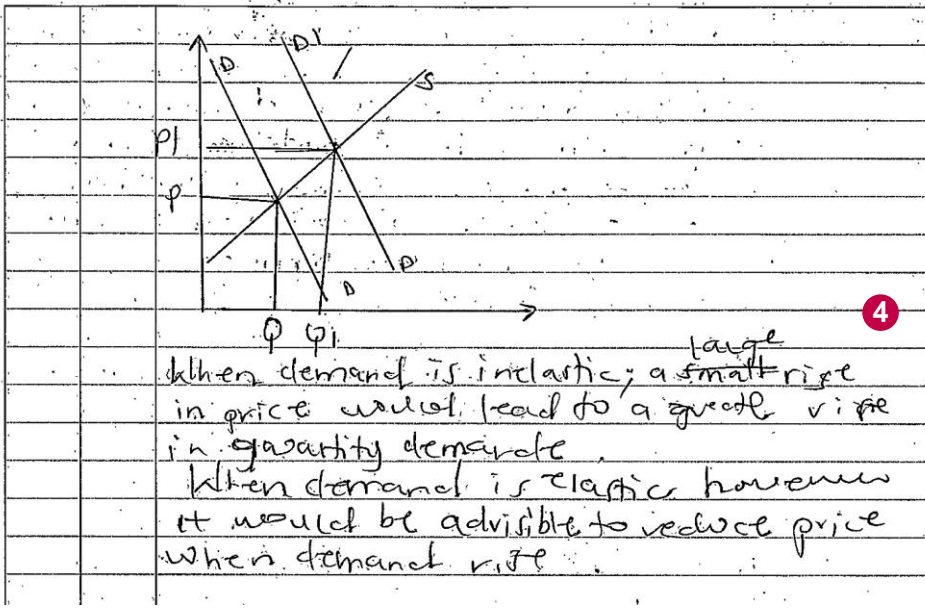 D
D1
S
P1
P
D
D
Q
Q1
4
large
When demand is inelastic; a small rise
in price would lead to a great rise
in quantity demande.
When demand is elastic however
it would be advisible to reduce price
when demand rise.